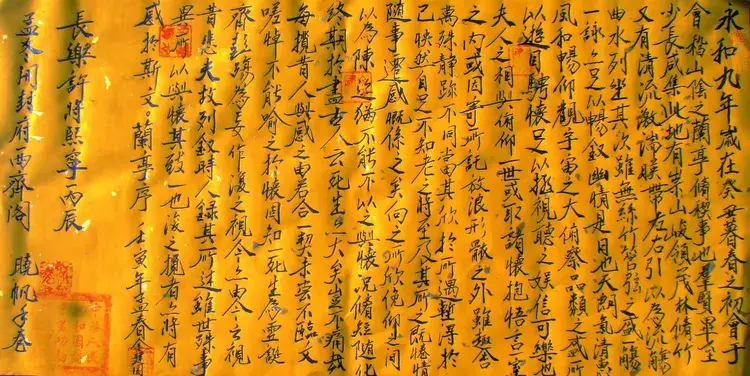 永和九年歲在癸丑暮春之初會于
會稽山陰之蘭亭脩稧事也羣賢畢至
少長咸集此地有崇山峻領茂林脩竹
又有清流激湍暎帶左右引以為流觴
曲水列坐其次雖無絲竹管弦之盛觴
一詠亦足以暢叙幽情是日也天朗氣清惠
風和暢仰觀宇宙之大俯察品類之盛所
以遊目騁懷足以極視聽之娛信可樂也
夫人之相與俯仰一世或取諸懷抱悟言一室
之內或因寄所託放浪形骸之外雖趣舍
萬殊靜躁不同當其欣於所遇暫得於
己怏然自足不知老之將至及其所之既惓情
隨事遷感慨係之矣向之所欣俛仰之間
以為陳迹猶不能不以之興懷況脩短隨化
終期於盡古人云死生亦大矣豈不痛哉
每攬昔人興感之由若合一契未嘗不臨文
嗟悼不能喻之於懷固知一死生為虛誕
齊彭殤為妄作後之視今亦由今之視
昔悲夫故列叙時人錄其所述雖世殊事
異所以興懷其致一也後之攬者亦將有
感於斯文。蘭亭序 壬寅年孟春
長樂許將熙寧丙辰
孟冬開封府西齊閣 曉帆手卷